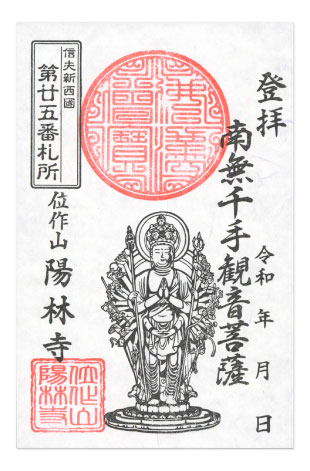 登拝
南無千手観音菩薩
令和 年 月 日
信夫新西國
第廿五番札所
位作山
陽林寺
位作山
陽林寺